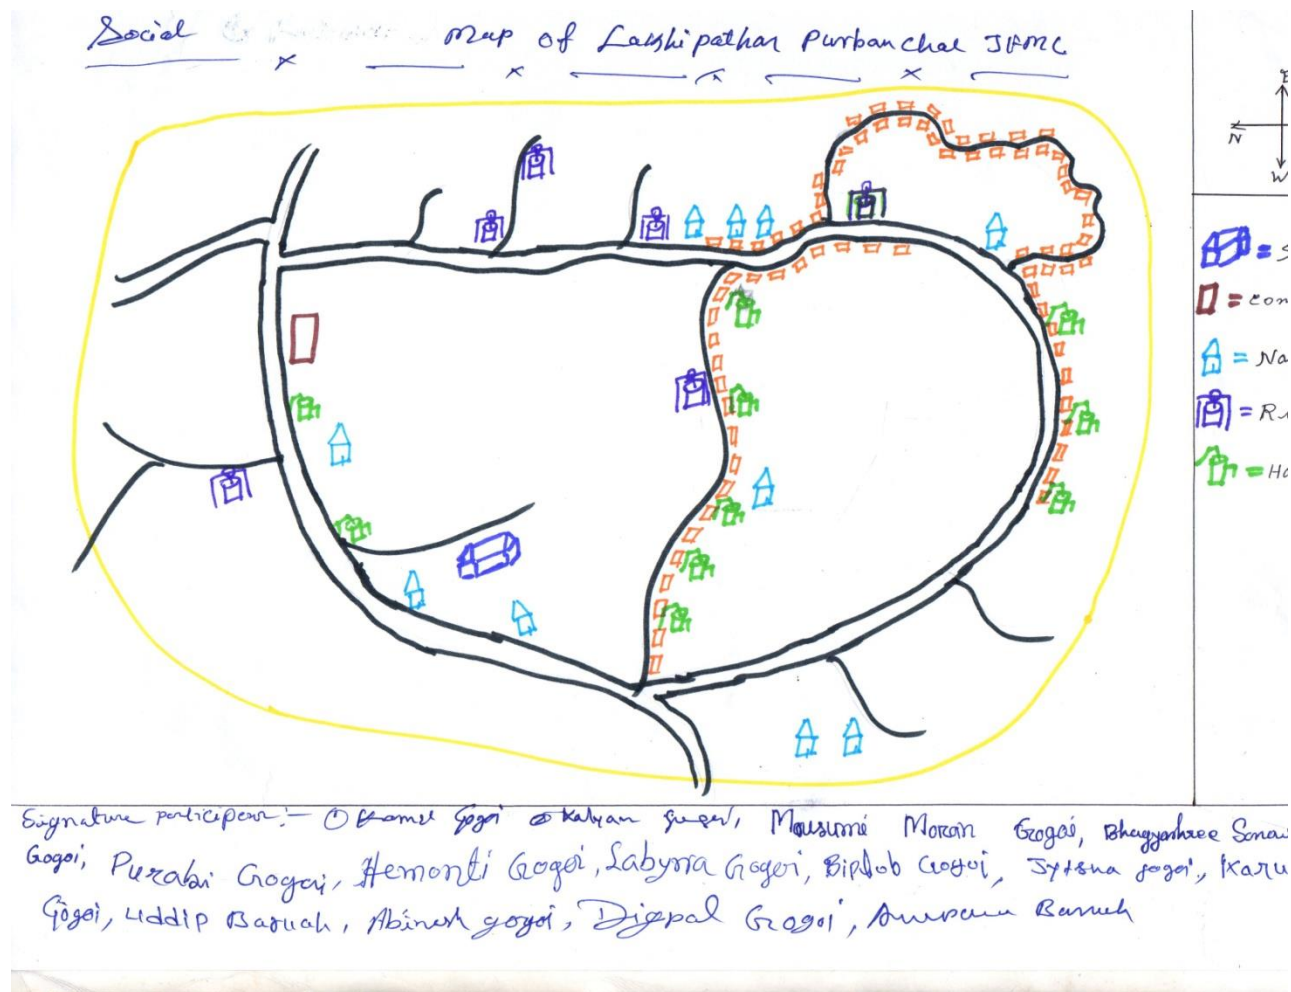 Social Map of Lakhipathar Purbanchal JFMC
E
N
W
= S
= Con
= Na
= R
= Ha
Signature participear:- ① Gogoi Kalyan Gogoi, Mousumi Moran Gogoi, Bhagyashree Sonow
Gogoi, Purabi Gogoi, Hemonti Gogoi, Labynya Gogoi, Biplob Gogoi, Jyotsna gogoi, Karu
Gogoi, Uddip Baruah, Abinash gogoi, Digpal Gogoi, Anupam Baruah